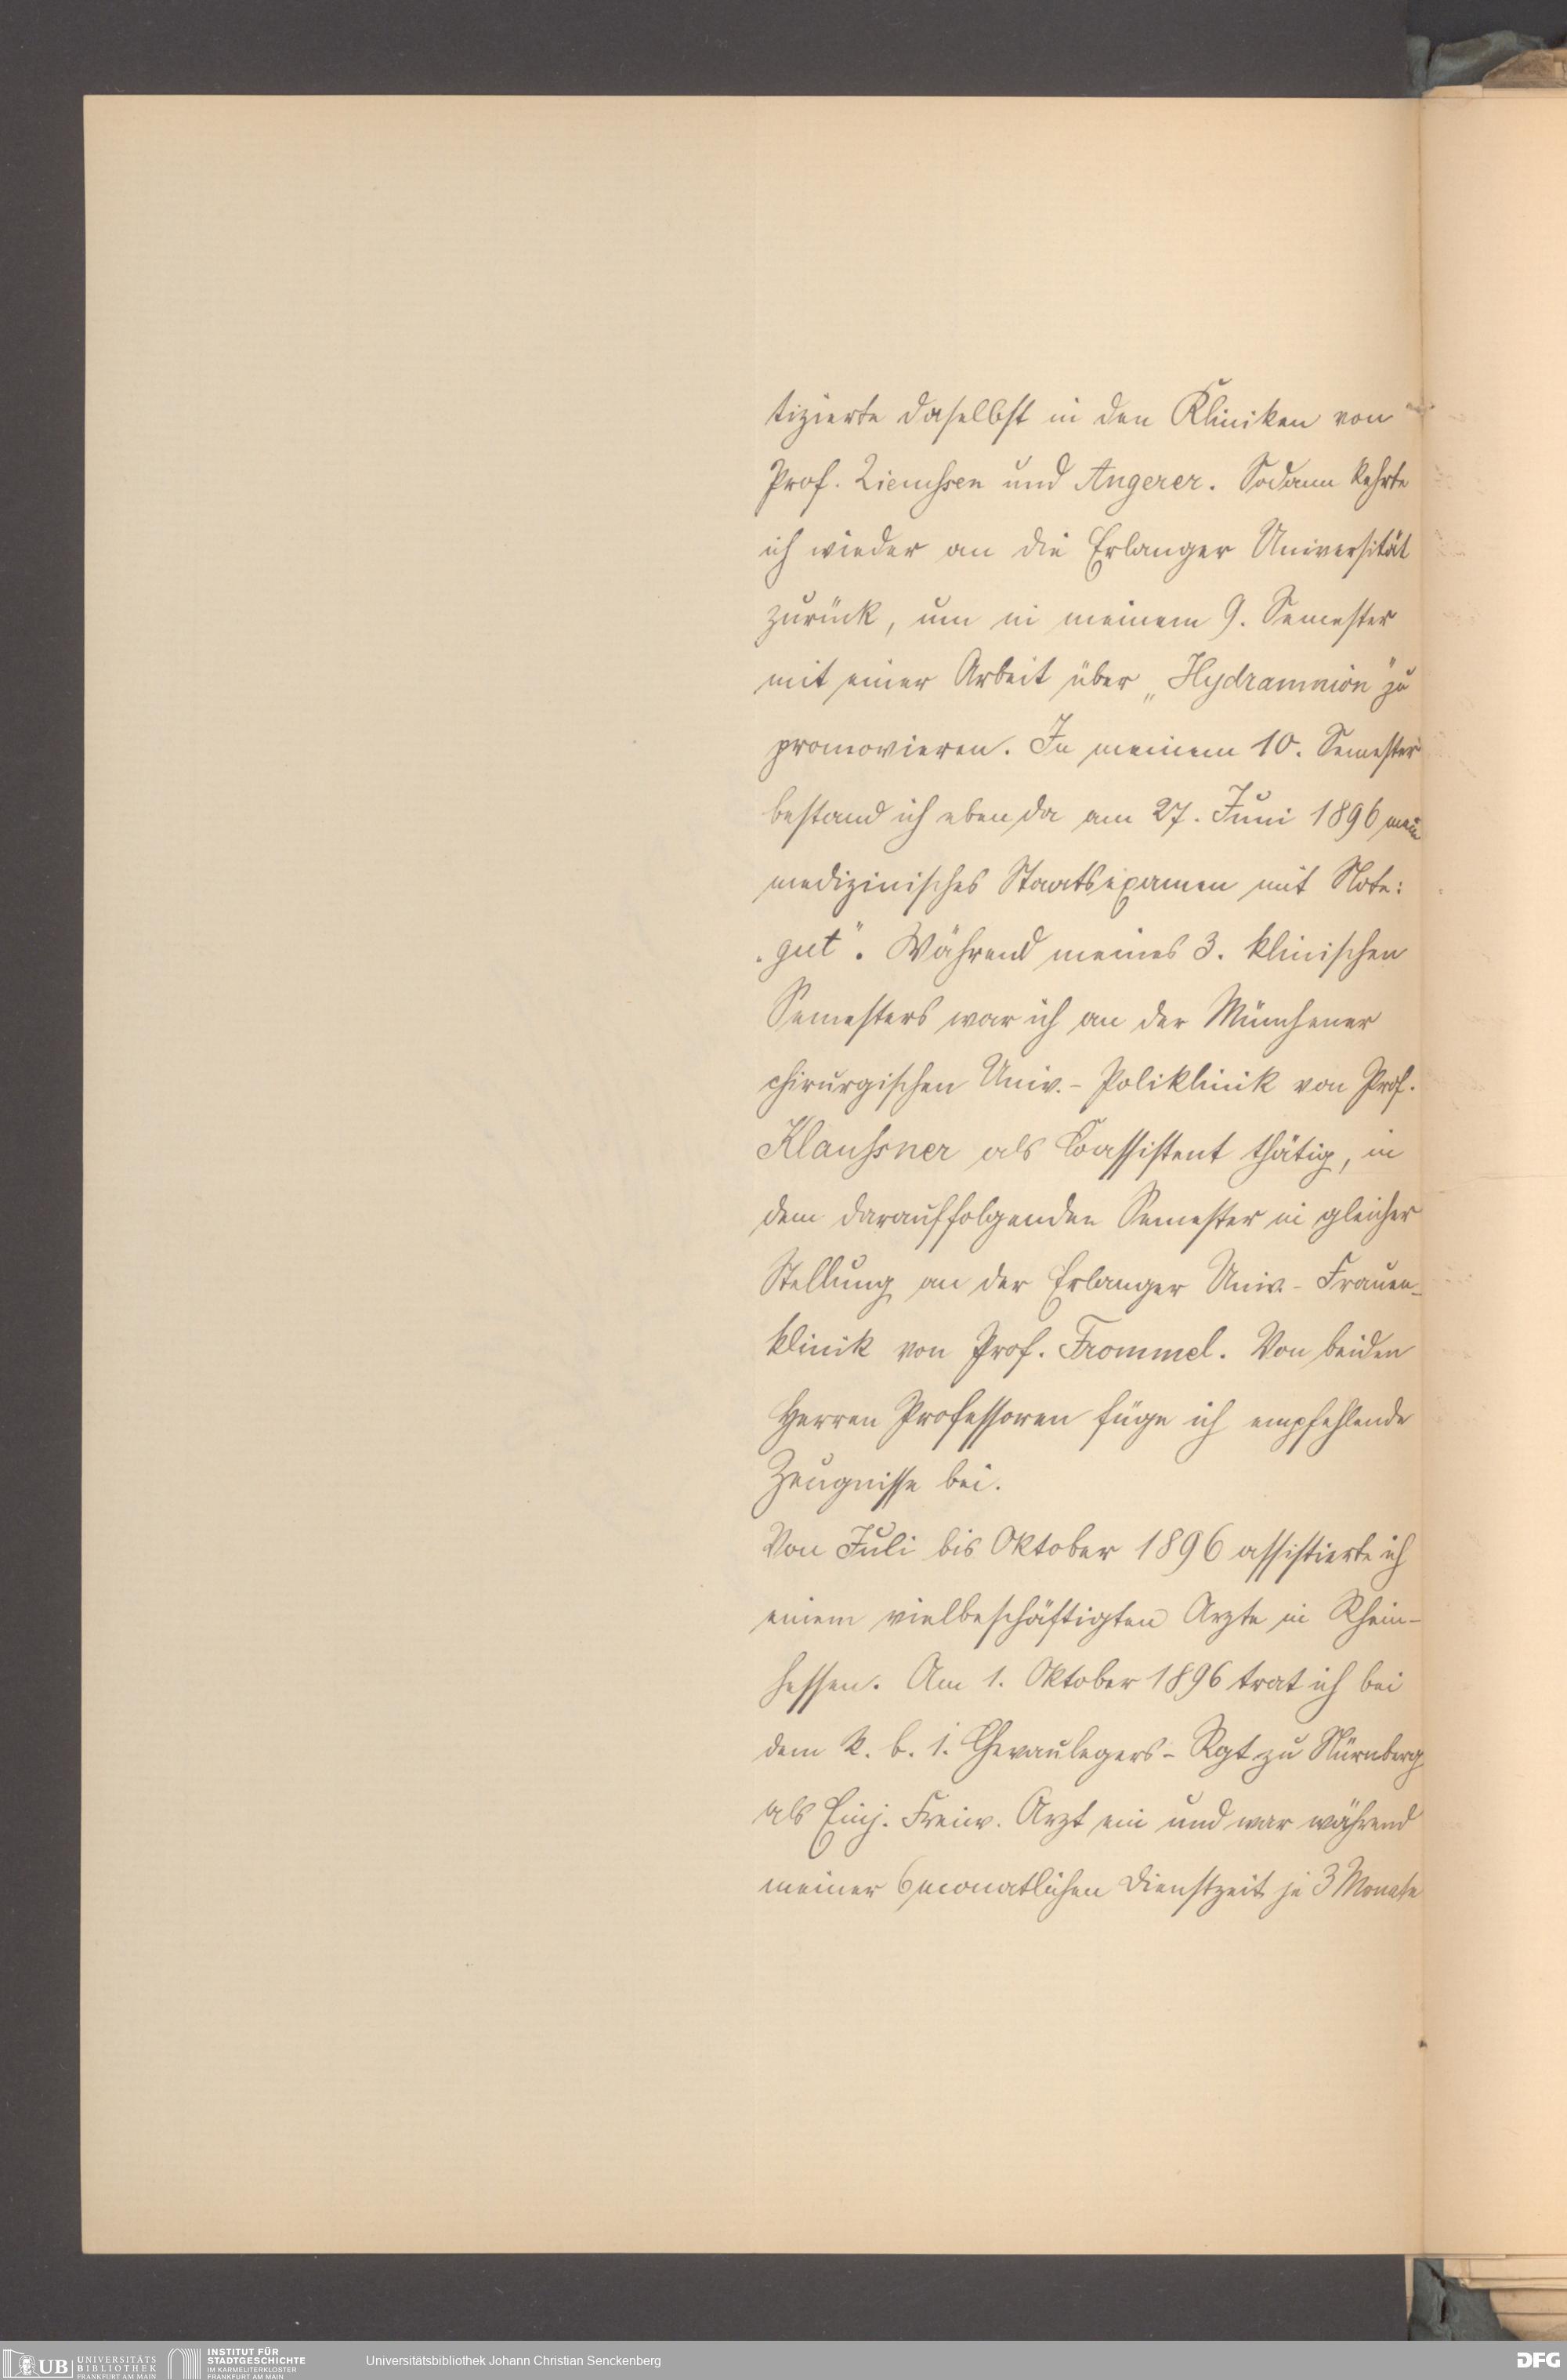 tizierte daselbst in den Kliniken von
Prof. Ziemssen und Angerer. Sodann kehrte
ich wieder an die Erlanger Universität
zurück, um in meinem 9. Semester
mit einer Arbeit über „Hydramnion" zu
promovieren. In meinem 10. Semester
bestand ich ebenda am 27. Juni 1896 mein
medizinisches Staatsexamen mit Note:
„gut". Während meines 3. klinischen
Semesters war ich an der Münchener
chirurgischen Univ.- Poliklinik von Prof.
Klaussner als Coassistent thätig, in
dem darauffolgenden Semester in gleicher
Stellung an der Erlanger Univ.- Frauen-
klinik von Prof. Frommel. Von beiden
Herren Professoren füge ich empfehlende
Zeugnisse bei.
Von Juli bis Oktober 1896 assistierte ich
einem vielbeschäftigten Arzte in Rhein-
hessen. Am 1. Oktober 1896 trat ich bei
dem k. b. 1. Chevaulegers- Rgt. zu Nürnberg
als Einj. Freiw. Arzt ein und war während
meiner 6monatlichen Dienstzeit je 3 Monate
UB UNIVERSITÄTS
BIBLIOTHEK
FRANKFURT AM MAIN
INSTITUT FÜR
STADTGESCHICHTE
IM KARMELITERKLOSTER
FRANKFURT AM MAIN
Universitätsbibliothek Johann Christian Senckenberg
DFG